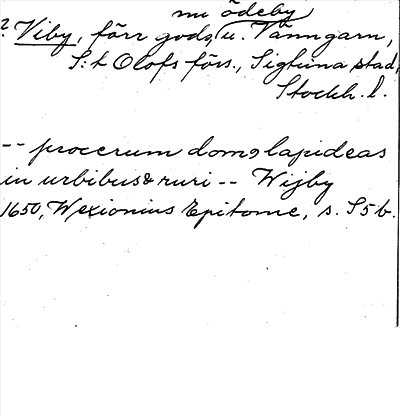 nu ödeby
? Viby, förr gods, u. Vänngarn,
S:t Olofs förs., Sigtuna stad,
Stockh. l.
-- procerum domꝯ lapideas
in urbibus & ruri -- Wijby
1650, Wexionius Epitome, s. S5b.